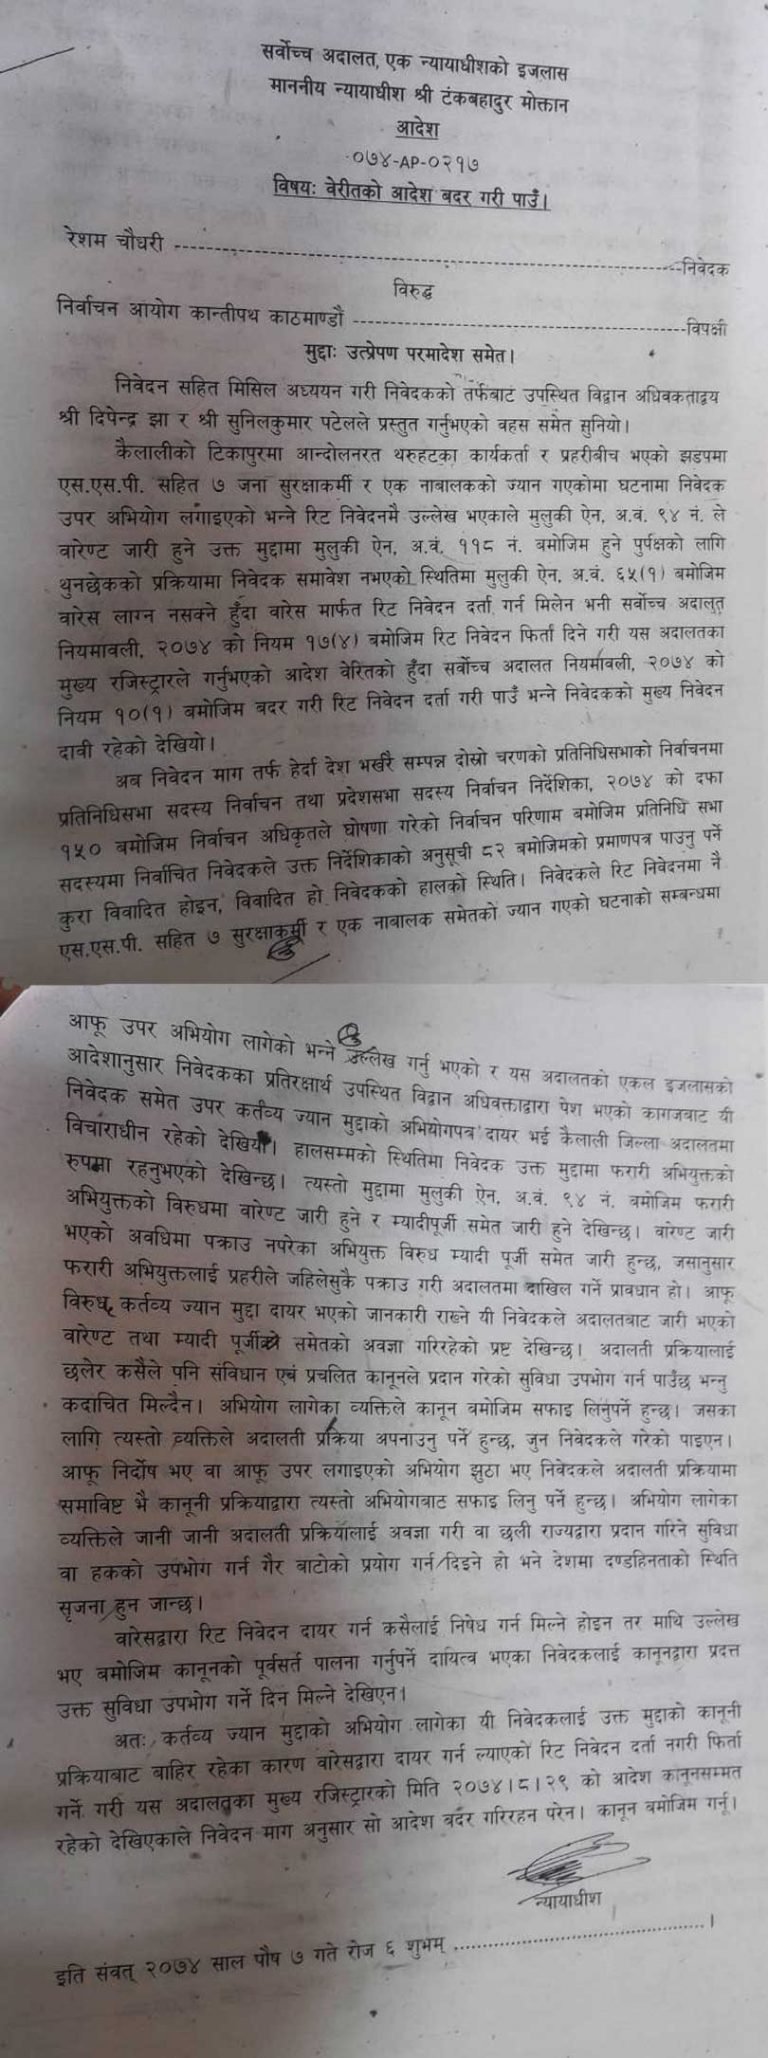 सर्वोच्च अदालत, एक न्यायाधीशको इजलास
माननीय न्यायाधीश श्री टंकबहादुर मोक्तान
आदेश
०७४-AP-०२१७
विषयः वेरीतको आदेश बदर गरी पाउँ।
रेशम चौधरी ------------------------------------------------------------निवेदक
विरुद्ध
निर्वाचन आयोग कान्तीपथ काठमाण्डौं ----------------------------------------विपक्षी
मुद्दाः उत्प्रेषण परमादेश समेत।
निवेदन सहित मिसिल अध्ययन गरी निवेदकको तर्फबाट उपस्थित विद्वान अधिवक्ताद्वय
श्री दिपेन्द्र झा र श्री सुनिलकुमार पटेलले प्रस्तुत गर्नुभएको वहस समेत सुनियो।
कैलालीको टिकापुरमा आन्दोलनरत थरुहटका कार्यकर्ता र प्रहरीबीच भएको झडपमा
एस.एस.पी. सहित ७ जना सुरक्षाकर्मी र एक नाबालकको ज्यान गएकोमा घटनामा निवेदक
उपर अभियोग लगाइएको भन्ने रिट निवेदनमै उल्लेख भएकाले मुलुकी ऐन, अ.वं. ९४ नं. ले
वारेण्ट जारी हुने उक्त मुद्दामा मुलुकी ऐन, अ.वं. ११८ नं. बमोजिम हुने पुर्पक्षको लागि
थुनछेकको प्रक्रियामा निवेदक समावेश नभएको स्थितिमा मुलुकी ऐन, अ.वं. ६५(१) बमोजिम
वारेस लाग्न नसक्ने हुँदा वारेस मार्फत रिट निवेदन दर्ता गर्न मिलेन भनी सर्वोच्च अदालत
नियमावली, २०७४ को नियम १७(४) बमोजिम रिट निवेदन फिर्ता दिने गरी यस अदालतका
मुख्य रजिस्ट्रारले गर्नुभएको आदेश वेरितको हुँदा सर्वोच्च अदालत नियमावली, २०७४ को
नियम १०(१) बमोजिम बदर गरी रिट निवेदन दर्ता गरी पाउँ भन्ने निवेदकको मुख्य निवेदन
दावी रहेको देखियो।
अब निवेदन माग तर्फ हेर्दा देश भर्खरै सम्पन्न दोस्रो चरणको प्रतिनिधिसभाको निर्वाचनमा
प्रतिनिधिसभा सदस्य निर्वाचन तथा प्रदेशसभा सदस्य निर्वाचन निर्देशिका, २०७४ को दफा
१५० बमोजिम निर्वाचन अधिकृतले घोषणा गरेको निर्वाचन परिणाम बमोजिम प्रतिनिधि सभा
सदस्यमा निर्वाचित निवेदकले उक्त निर्देशिकाको अनुसूची ८२ बमोजिमको प्रमाणपत्र पाउनु पर्ने
कुरा विवादित होइन, विवादित हो निवेदकको हालको स्थिति। निवेदकले रिट निवेदनमा नै
एस.एस.पी. सहित ७ सुरक्षाकर्मी र एक नाबालक समेतको ज्यान गएको घटनाको सम्बन्धमा
आफू उपर अभियोग लागेको भन्ने उल्लेख गर्नु भएको र यस अदालतको एकल इजलासको
आदेशानुसार निवेदकका प्रतिरक्षार्थ उपस्थित विद्वान अधिवक्ताद्वारा पेश भएको कागजबाट यी
निवेदक समेत उपर कर्तव्य ज्यान मुद्दाको अभियोगपत्र दायर भई कैलाली जिल्ला अदालतमा
विचाराधीन रहेको देखियो। हालसम्मको स्थितिमा निवेदक उक्त मुद्दामा फरारी अभियुक्तको
रुपमा रहनुभएको देखिन्छ। त्यस्तो मुद्दामा मुलुकी ऐन, अ.वं. ९४ नं. बमोजिम फरारी
अभियुक्तको विरुधमा वारेण्ट जारी हुने र म्यादीपूर्जी समेत जारी हुने देखिन्छ। वारेण्ट जारी
भएको अवधिमा पक्राउ नपरेका अभियुक्त विरुध म्यादी पूर्जी समेत जारी हुन्छ, जसानुसार
फरारी अभियुक्तलाई प्रहरीले जहिलेसुकै पक्राउ गरी अदालतमा दाखिल गर्ने प्रावधान हो। आफू
विरुध कर्तव्य ज्यान मुद्दा दायर भएको जानकारी राख्ने यी निवेदकले अदालतबाट जारी भएको
वारेण्ट तथा म्यादी पूर्जी समेतको अवज्ञा गरिरहेको प्रष्ट देखिन्छ। अदालती प्रक्रियालाई
छलेर कसैले पनि संविधान एवं प्रचलित कानूनले प्रदान गरेको सुविधा उपभोग गर्न पाउँछ भन्नु
कदाचित मिल्दैन। अभियोग लागेका व्यक्तिले कानून बमोजिम सफाइ लिनुपर्ने हुन्छ। जसका
लागि त्यस्तो व्यक्तिले अदालती प्रक्रिया अपनाउनु पर्ने हुन्छ, जुन निवेदकले गरेको पाइएन।
आफू निर्दोष भए वा आफू उपर लगाइएको अभियोग झुठा भए निवेदकले अदालती प्रक्रियामा
समाविष्ट भै कानूनी प्रक्रियाद्वारा त्यस्तो अभियोगबाट सफाइ लिनु पर्ने हुन्छ। अभियोग लागेका
व्यक्तिले जानी जानी अदालती प्रक्रियालाई अवज्ञा गरी वा छली राज्यद्वारा प्रदान गरिने सुविधा
वा हकको उपभोग गर्न गैर बाटोको प्रयोग गर्न दिइने हो भने देशमा दण्डहिनताको स्थिति
सृजना हुन जान्छ।
वारेसद्वारा रिट निवेदन दायर गर्न कसैलाई निषेध गर्न मिल्ने होइन तर माथि उल्लेख
भए बमोजिम कानूनको पूर्वसर्त पालना गर्नुपर्ने दायित्व भएका निवेदकलाई कानूनद्वारा प्रदत्त
उक्त सुविधा उपभोग गर्ने दिन मिल्ने देखिएन।
अतः कर्तव्य ज्यान मुद्दाको अभियोग लागेका यी निवेदकलाई उक्त मुद्दाको कानूनी
प्रक्रियाबाट बाहिर रहेका कारण वारेसद्वारा दायर गर्न ल्याएको रिट निवेदन दर्ता नगरी फिर्ता
गर्ने गरी यस अदालतका मुख्य रजिस्ट्रारको मिति २०७४।८।२९ को आदेश कानूनसम्मत
रहेको देखिएकाले निवेदन माग अनुसार सो आदेश बदर गरिरहन परेन। कानून बमोजिम गर्नू।
न्यायाधीश
इति संवत् २०७४ साल पौष ७ गते रोज ६ शुभम् ..................................................।